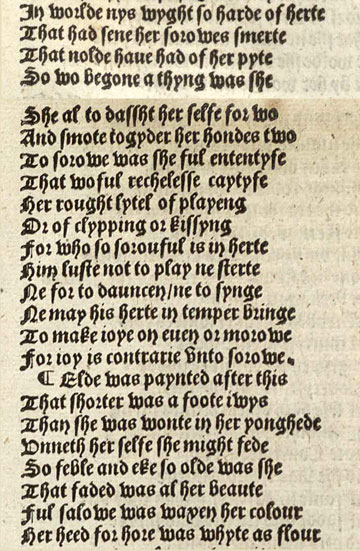 In worlde nys wyght so harde of herte
That had sene her sorowes smerte
That nolde haue had of her pyte
So wo begone a thyng was she
She al to dassht her selfe for wo
And smote togyder her hondes two
To sorowe was she ful ententyfe
That woful rechelesse caytyfe
Her rought lytel of playeng
Or of clypping or kissyng
For who so sorouful is in herte
Him luste not to play ne sterte
Ne for to dauncen/ne to synge
Ne may his herte in temper bringe
To make ioye on euen or morowe
For ioy is contrarie vnto sorowe.
¶ Elde was paynted after this
That shorter was a foote iwys
Than she was wonte in her yonghede
Vnneth her selfe she might fede
So feble and eke so olde was she
That faded was al her beaute
Ful salowe was waxen her colour
Her heed for hore was whyte as flour